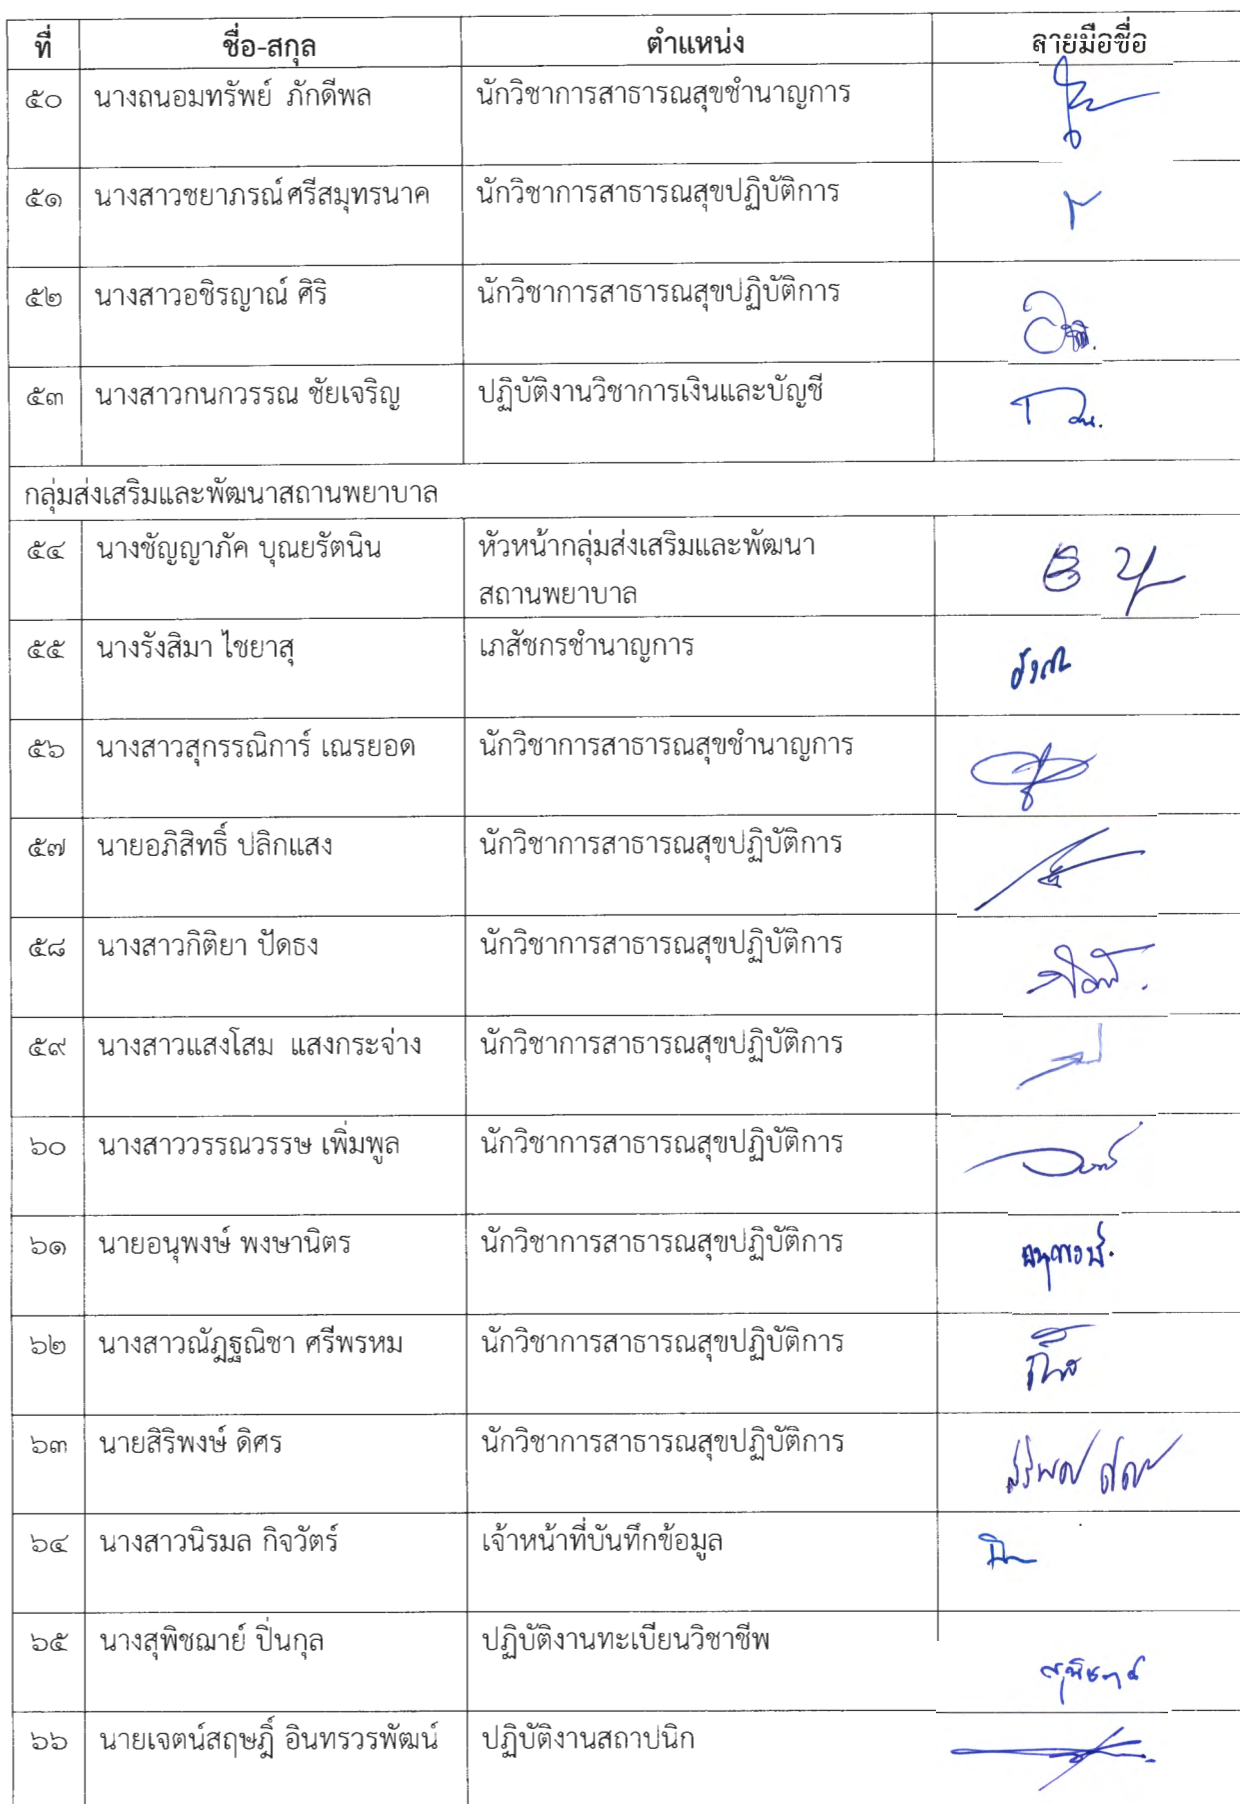 ที่ ชื่อ-สกุล ตำแหน่ง ลายมือชื่อ
๕๐ นางถนอมทรัพย์ ภักดีพล นักวิชาการสาธารณสุขชำนาญการ
๕๑ นางสาวชยาภรณ์ ศรีสมุทรนาค นักวิชาการสาธารณสุขปฏิบัติการ
๕๒ นางสาวอชิรญาณ์ ศิริ นักวิชาการสาธารณสุขปฏิบัติการ
๕๓ นางสาวกนกวรรณ ชัยเจริญ ปฏิบัติงานวิชาการเงินและบัญชี
กลุ่มส่งเสริมและพัฒนาสถานพยาบาล
๕๔ นางชัญญาภัค บุณยรัตนิน หัวหน้ากลุ่มส่งเสริมและพัฒนา
สถานพยาบาล
๕๕ นางรังสิมา ไชยาสุ เภสัชกรชำนาญการ
๕๖ นางสาวสุกรรณิการ์ เณรยอด นักวิชาการสาธารณสุขชำนาญการ
๕๗ นายอภิสิทธิ์ ปลิกแสง นักวิชาการสาธารณสุขปฏิบัติการ
๕๘ นางสาวกิติยา ปัดธง นักวิชาการสาธารณสุขปฏิบัติการ
๕๙ นางสาวแสงโสม แสงกระจ่าง นักวิชาการสาธารณสุขปฏิบัติการ
๖๐ นางสาววรรณวรรษ เพิ่มพูล นักวิชาการสาธารณสุขปฏิบัติการ
๖๑ นายอนุพงษ์ พงษานิตร นักวิชาการสาธารณสุขปฏิบัติการ อนุพงษ์.
๖๒ นางสาวณัฏฐณิชา ศรีพรหม นักวิชาการสาธารณสุขปฏิบัติการ
๖๓ นายสิริพงษ์ ดิศร นักวิชาการสาธารณสุขปฏิบัติการ
๖๔ นางสาวนิรมล กิจวัตร์ เจ้าหน้าที่บันทึกข้อมูล
๖๕ นางสุพิชฌาย์ ปิ่นกุล ปฏิบัติงานทะเบียนวิชาชีพ สุพิชฌาย์
๖๖ นายเจตน์สฤษฎิ์ อินทรวรพัฒน์ ปฏิบัติงานสถาปนิก